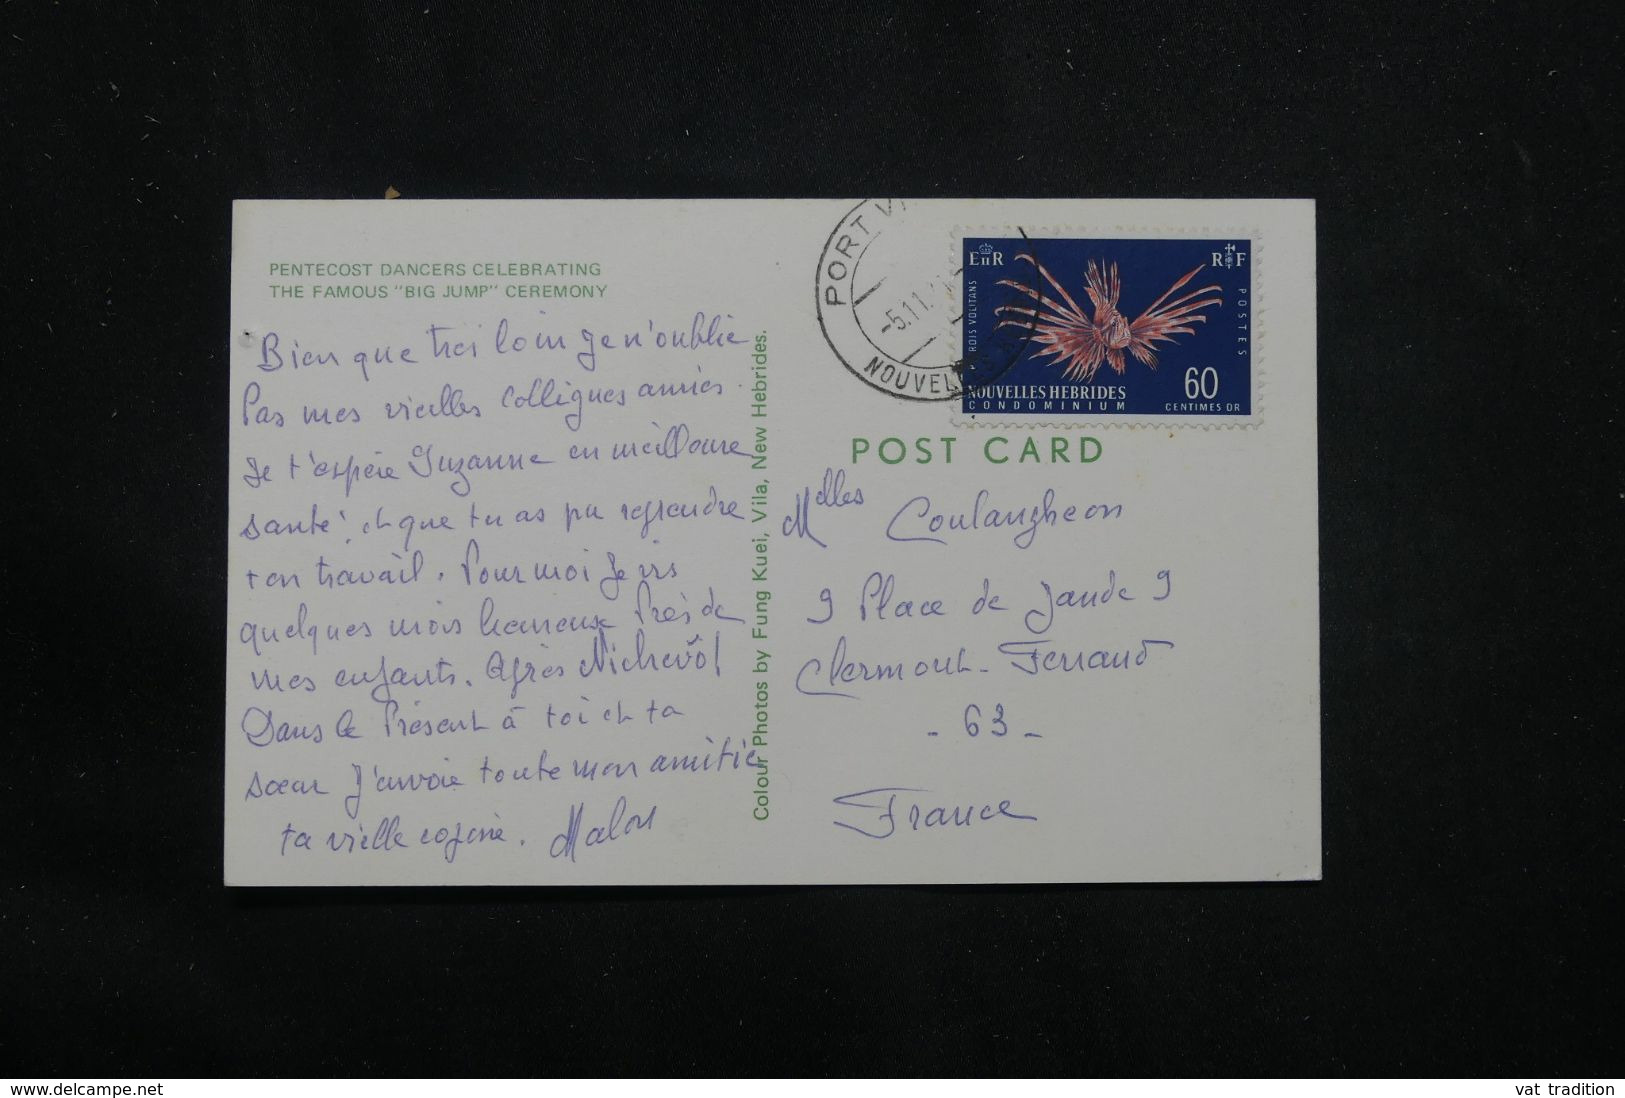 PENTECOST DANCERS CELEBRATING
THE FAMOUS "BIG JUMP" CEREMONY
Bien que très loin je n'oublie
Pas mes vieilles collègues amies.
Je t'espère Suzanne en meilleure
santé, et que tu as pu reprendre
ton travail. Pour moi je vis
quelques mois heureux Près de
mes enfants. Après Nichevô!
Dans le Présent à toi et ta
sœur J'envoie toute mon amitié
ta vieille copine.
Colour Photos by Fung Kuei, Vila, New Hebrides.
PORT V
5.11.
NOUVELLES
EIIR
RF
POSTES
ROIS VOLITANS
NOUVELLES HEBRIDES
CONDOMINIUM
60
CENTIMES OR
POST CARD
Melles Coulangheon
9 Place de Jaude 9
Clermont-Ferrand
- 63 -
France
www.delcampe.net
vat tradition